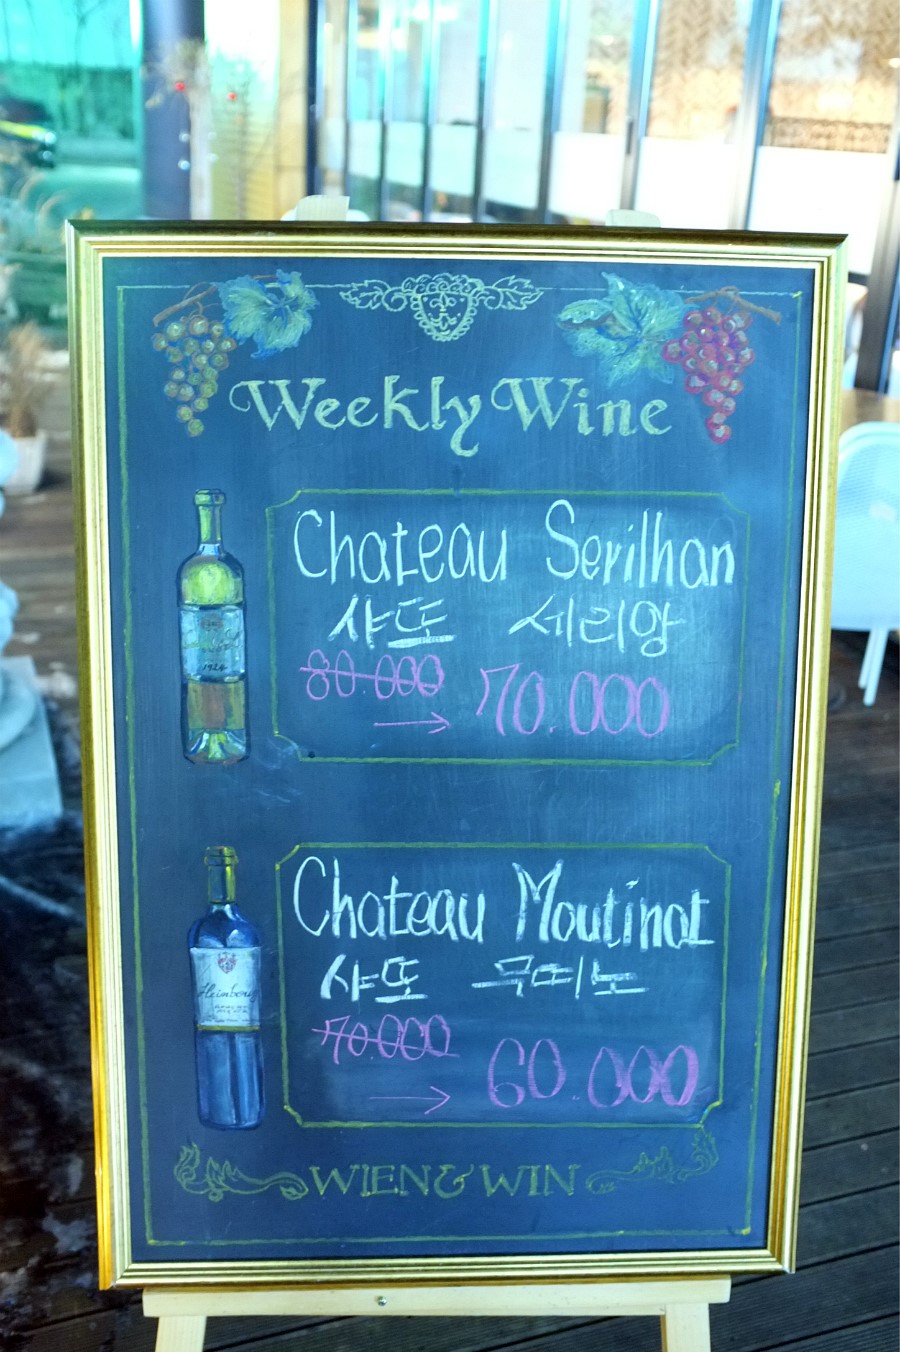 Weekly Wine
Chateau Serilhan
샤또 세리앙
80.000
→ 70.000
1924
Chateau Moutinot
샤또 무띠노
70.000
→ 60.000
Heimbourg
WIEN & WIN